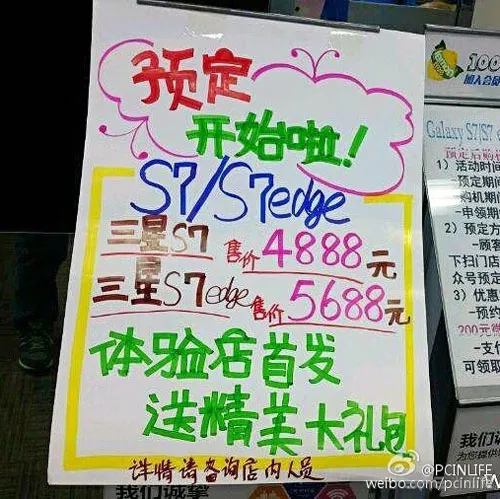 预定
开始啦！
S7/S7edge
三星S7 售价4888元
三星S7edge售价5688元
体验店首发
送精美大礼包
详情请咨询店内人员
100
加入会员
Galaxy S7/S7
预定后购机
1）活动时间
-预定期间
购机期间
-申领期
2）预定方
-顾客
下扫门店
众号预定
3）优惠
-预约
200元
-支付
可领取
我们诚挚
为您提供
我们诚挚
@PCINLIFE
weibo.com/pcinlife